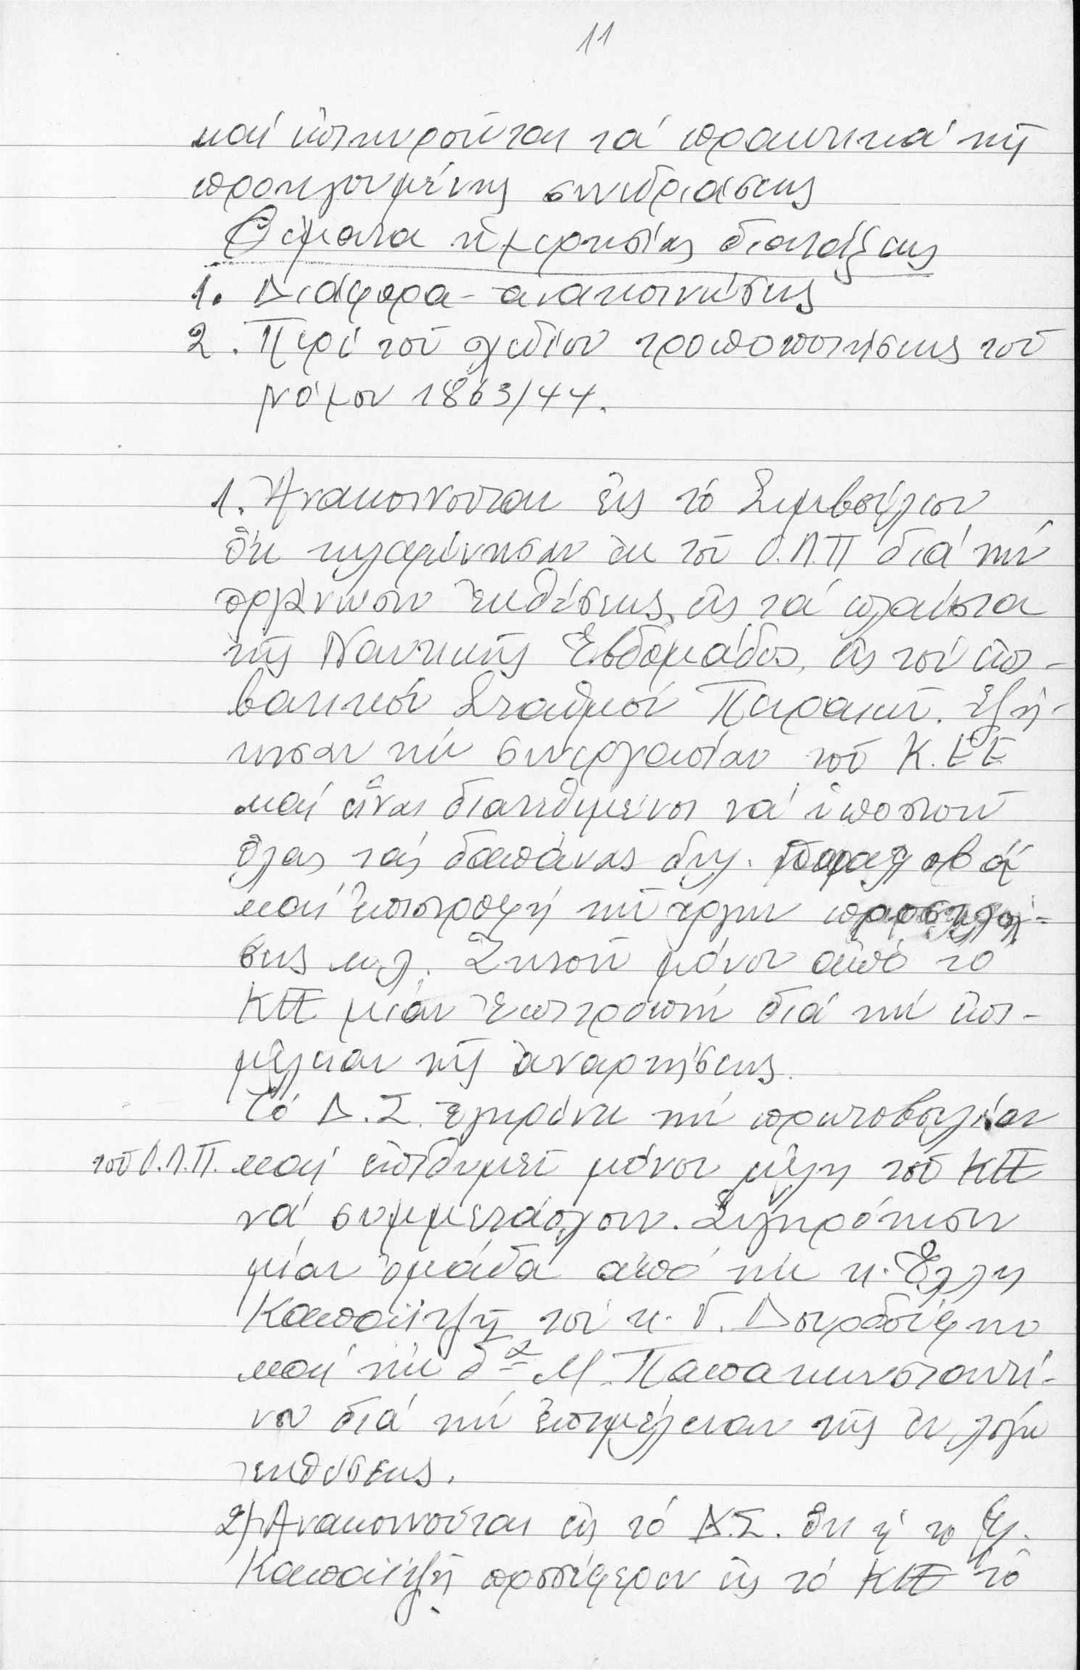 11
καί ἐπικυροῦνται τά πρακτικά τῆς
προηγουμένης συνεδριάσεως
Θέματα ἡμερησίας διατάξεως
1. Διάφορα - ἀνακοινώσεις
2. Περί τοῦ σχεδίου τροποποιήσεως τοῦ
νόμου 1863/44.
1. Ἀνακοινοῦται εἰς τό Συμβούλιον
ὅτι τηλεφώνησαν ἐκ τοῦ Ο.Λ.Π διά τήν
ὀργάνωσιν ἐκθέσεως εἰς τά πλαίσια
τῆς Ναυτικῆς Ἑβδομάδος, εἰς τόν ἐπι-
βατικόν Σταθμόν Πειραιῶς. Ἐζή-
τησαν τήν συνεργασίαν τοῦ Κ.ΕΕ
καί εἶναι διατεθημένοι νά ὑποστοῦν
ὅλας τάς δαπάνας δηλ. παραλαβή
καί ἐπιστροφή τῶν ἔργων
σεις κ.λ. Ζητοῦν μόνον ἀπό τό
ΚΕΕ μίαν ἐπιτροπή διά τήν ἐπι-
μέλειαν τῆς ἀναρτήσεως.
Τό Δ.Σ. ἐγκρίνει τήν πρωτοβουλίαν
τοῦ Ο.Λ.Π. καί ἐπιθυμεῖ μόνον μέλη τοῦ ΚΕΕ
νά συμμετάσχουν. Συγκρότησιν
μίαν ὁμάδα ἀπό τήν κ. Ἕλλη
Καπαϊτζῆ τόν κ. Γ.
καί τήν δα Μ. Παπακωνσταντί-
νου διά τήν ἐπιμέλειαν τῆς ἐν λόγῳ
ἐκθέσεως.
2) Ἀνακοινοῦται εἰς τό Δ.Σ. ὅτι ἡ
Καπαϊτζῆ προσέφερεν εἰς τό ΚΕΕ τό